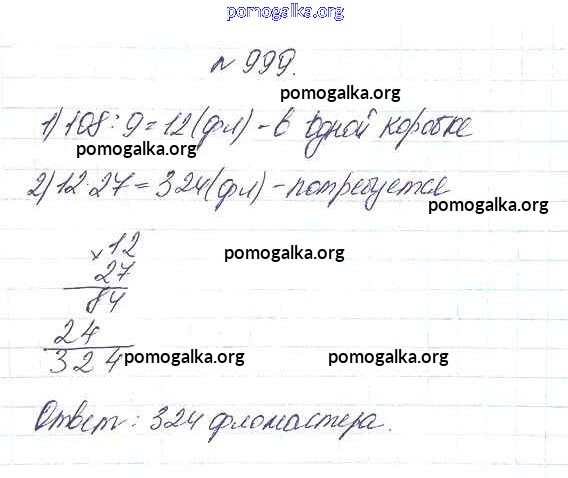 pomogalka.org
№ 999.
pomogalka.org
1) 108 : 9 = 12 (фл) - в одной коробке
pomogalka.org
2) 12 · 27 = 324 (фл) - потребуется
pomogalka.org
× 12 pomogalka.org
27
84
24
324 pomogalka.org pomogalka.org
Ответ: 324 фломастера.
pomogalka.org